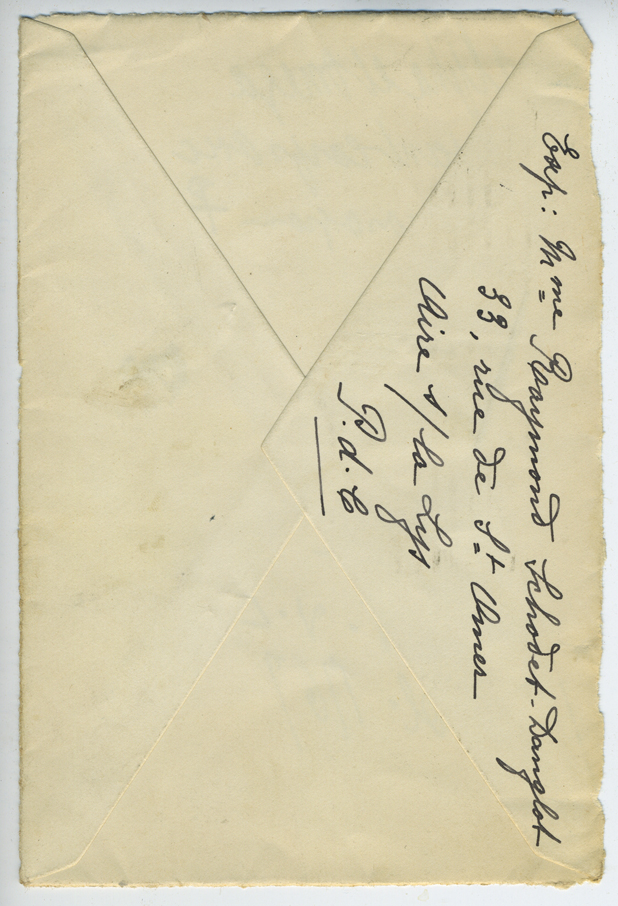 Exp: Mme Raymond Schodet-Danglot
33, rue de St Omer
Aire s/ la Lys
P.d.C